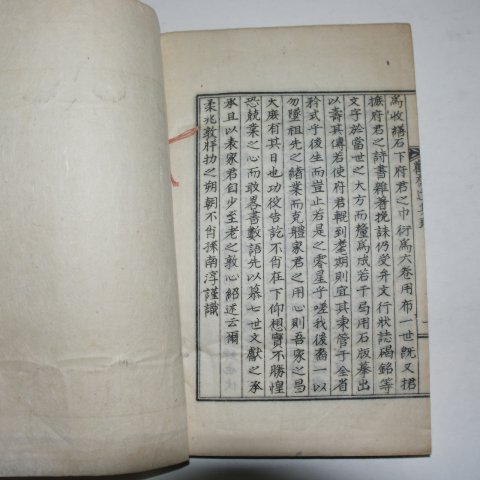 爲收緝石下府君之巾衍爲六卷用布一世旣又捃
摭府君之詩書雜著挽誄仍受弁文行狀誌碣銘等
文字於當世之大方而釐爲成若干局用石版摹出
以壽其傳若使府君輥到耋期則宜其東管于全省
矜式乎後生而豈止若是之零星乎嗟我後裔一以
勿墜祖先之緖業而克體家君之用心則吾家之昌
大庶有其日也功役告訖不肖在下仰想實不勝惶
恐兢業之心而敢卷書數語先以慕七世文獻之承
承且以表家君自少至老之敦心紹述云爾
柔兆敦牂 之朔朝不肖孫南淳謹識